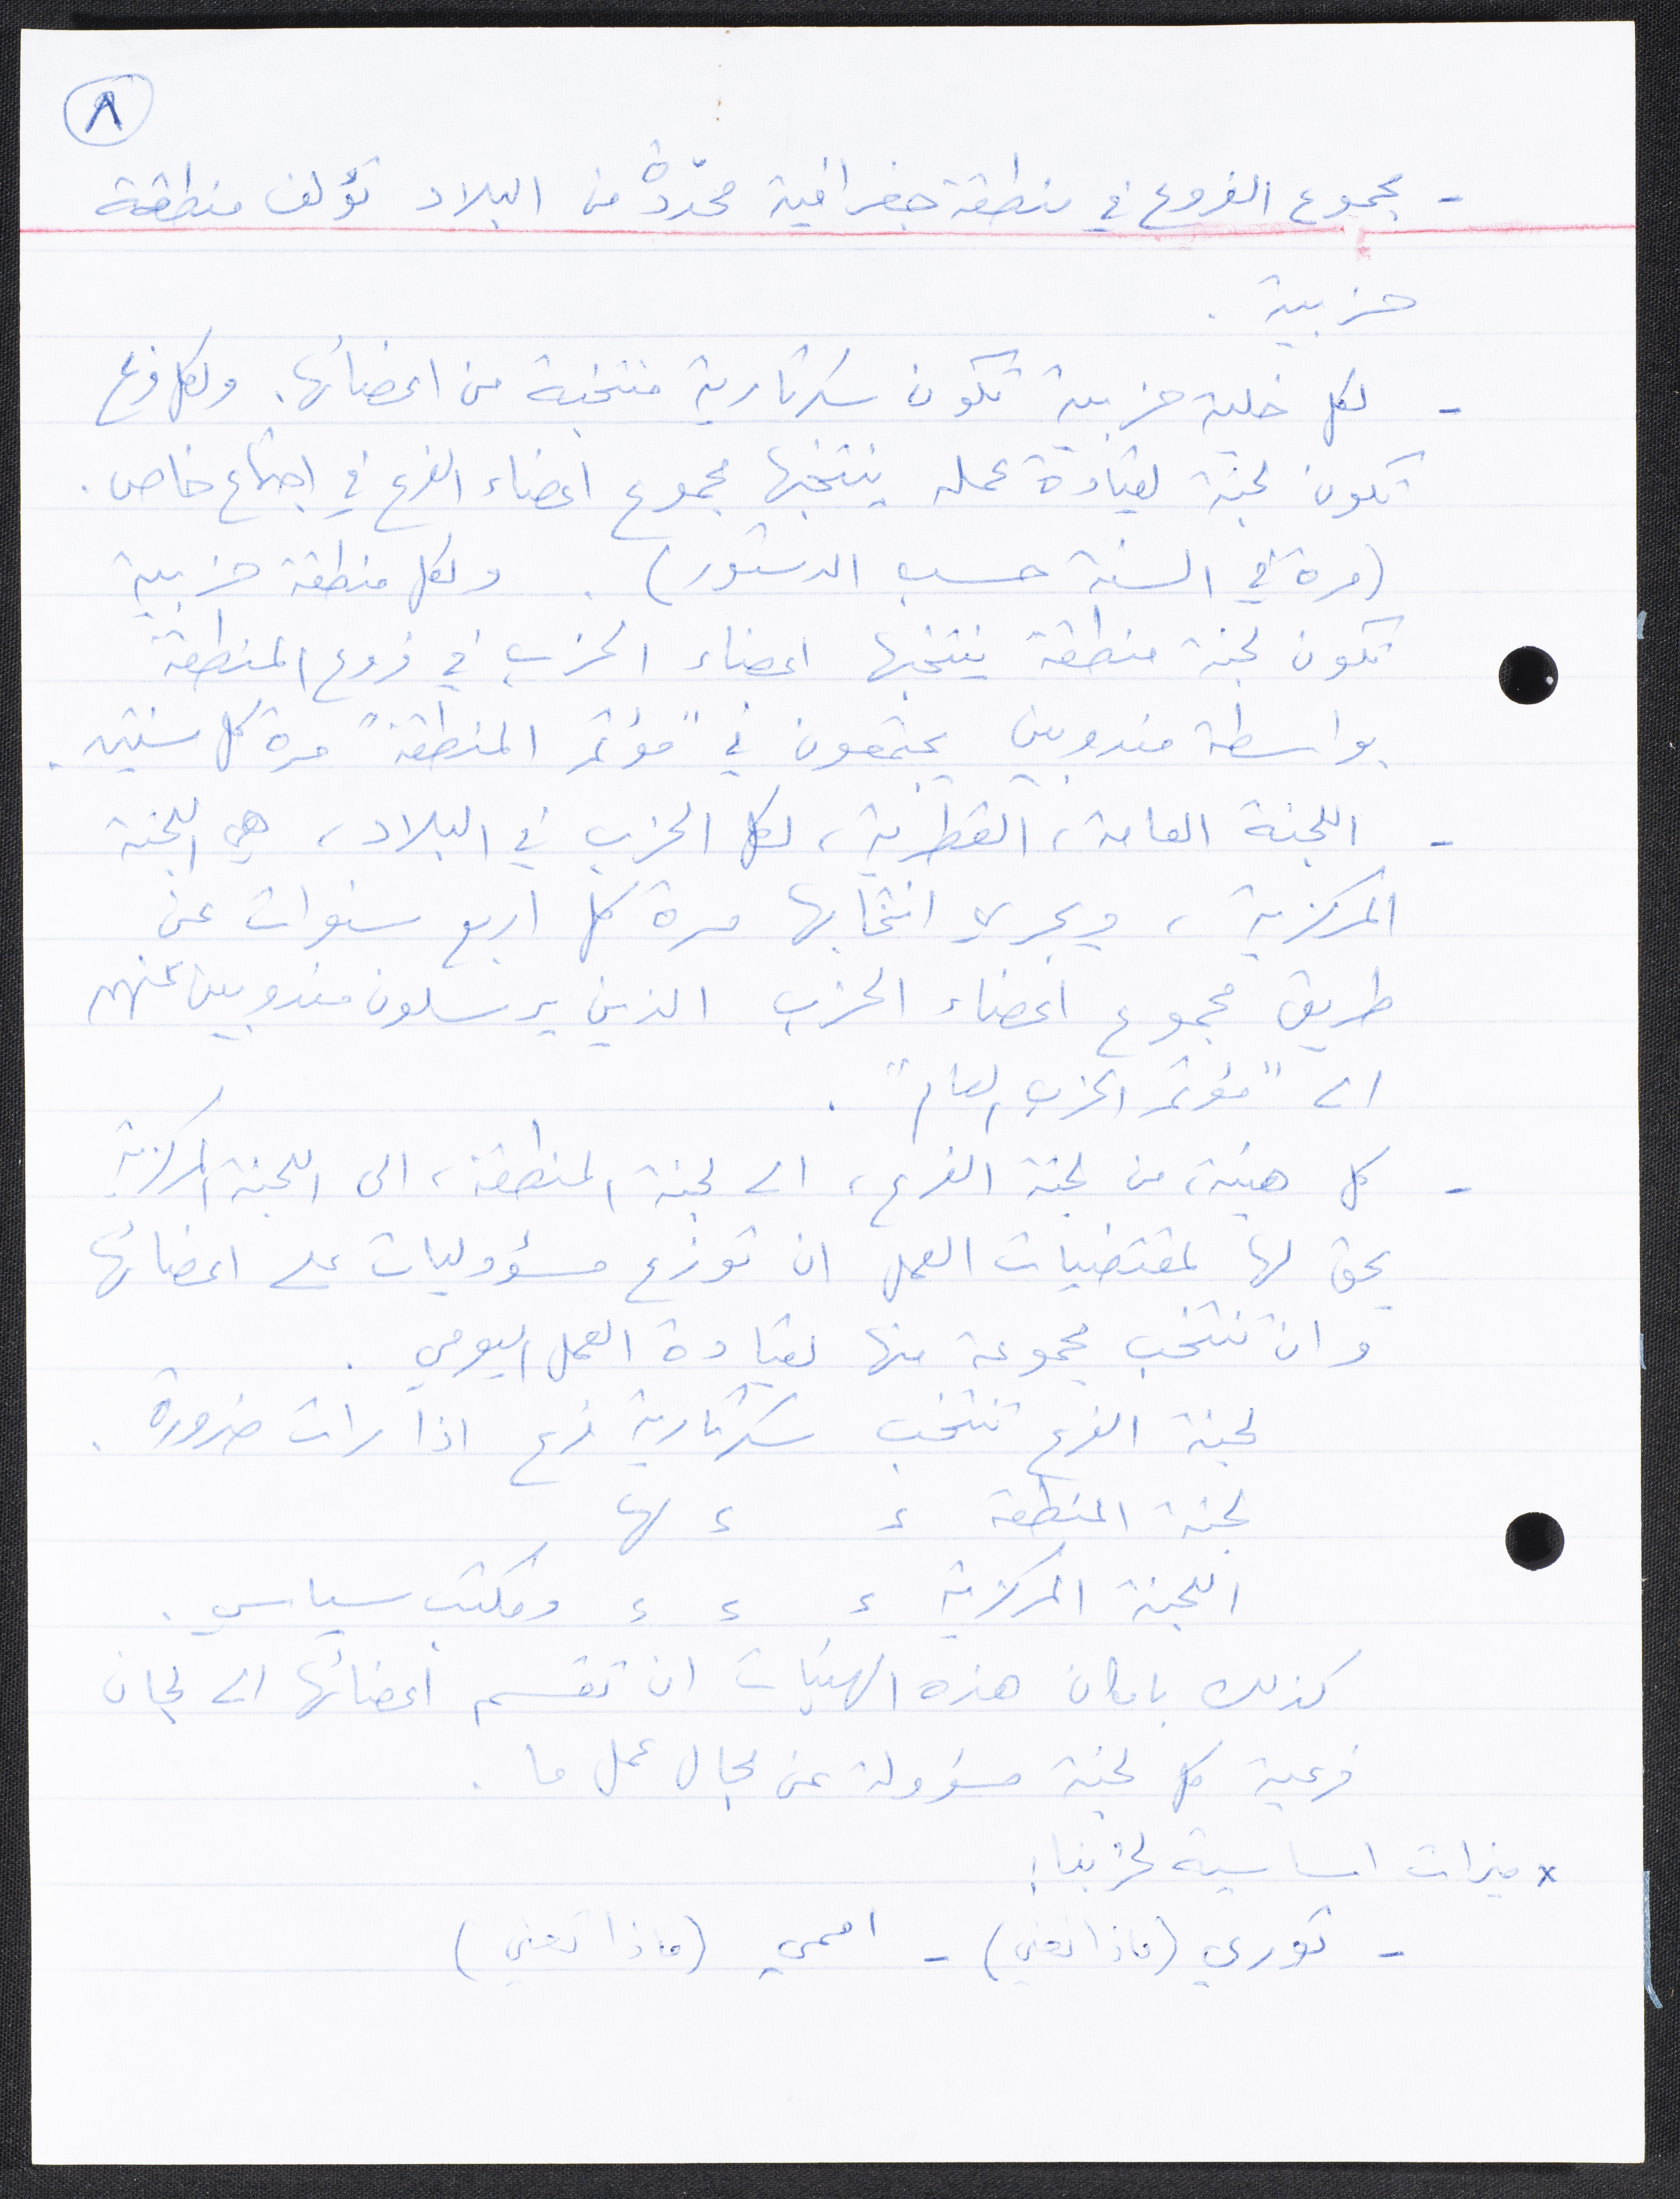 ٨
- مجموع الفروع في منطقة جغرافية محدّدة من البلاد تؤلف منطقة
حزبية .
- لكل خلية حزبية تكون سكرتارية منتخبة من اعضائها. ولكل فرع
تكون لجنة لقيادة عمله ينتخبها مجموع اعضاء الفرع في اجتماع خاص .
(مرة في السنة حسب الدستور) . ولكل منطقة حزبية
تكون لجنة منطقة ينتخبها اعضاء الحزب في فروع المنطقة
بواسطة مندوبين يجتمعون في "مؤتمر المنطقة" مرة كل سنتين .
- اللجنة العامة، القطرية، لكل الحزب في البلاد، هي اللجنة
المركزية ، ويجري انتخابها مرة كل اربع سنوات عن
طريق مجموع اعضاء الحزب الذين يرسلون مندوبين عنهم
الى "مؤتمر الحزب العام" .
- كل هيئة، من لجنة الفرع، الى لجنة المنطقة، الى اللجنة المركزية
يحق لها لمقتضيات العمل ان توزع مسؤوليات على اعضائها
وان تنتخب مجموعة منها لقيادة العمل اليومي .
لجنة الفرع تنتخب سكرتارية فرع اذا رات ضرورة .
لجنة المنطقة ء ء لها
اللجنة المركزية ء ء ء ومكتب سياسي .
كذلك بامكان هذه الهيئات ان تقسم اعضائها الى لجان
فرعية كل لجنة مسؤولة عن مجال عمل ما .
x ميزات اساسية لحزبنا:
- ثوري (ماذا تعني) - اممي (ماذا تعني)